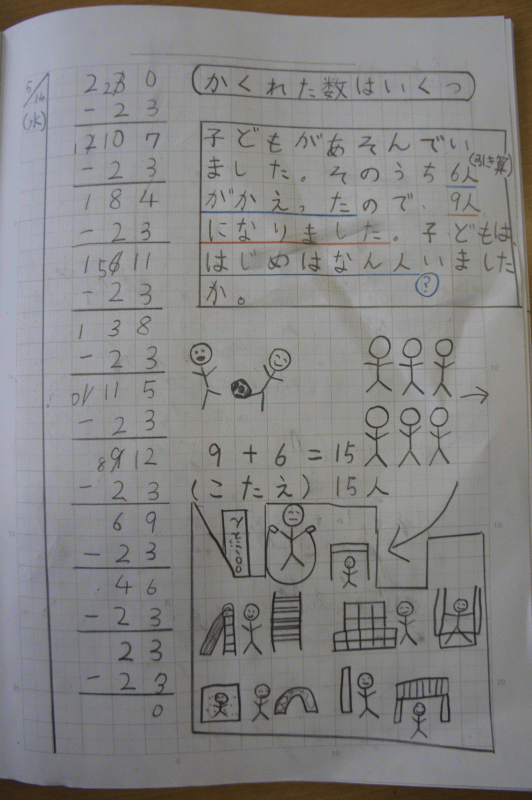 5/14
(水)
230
-23
207
-23
184
-23
161
-23
138
-23
115
-23
92
-23
69
-23
46
-23
23
-23
0
かくれた数はいくつ
子どもがあそんでい
ました。そのうち6人(引き算)
がかえったので、9人
になりました。子どもは、
はじめはなん人いました
か。
?
9+6=15
(こたえ) 15人